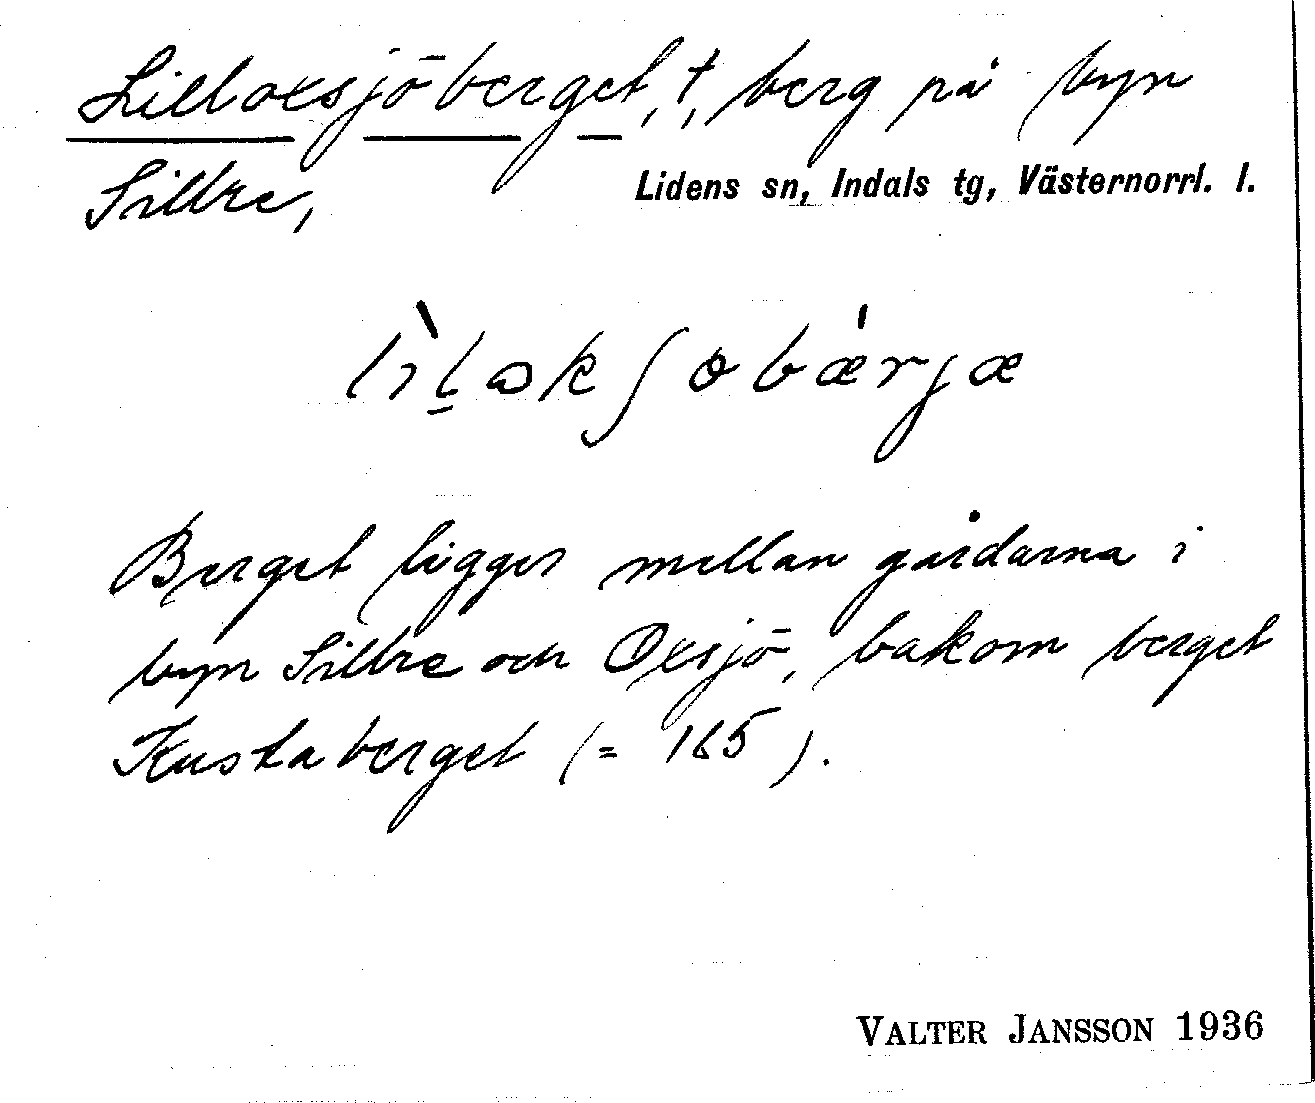 Lilloxsjöberget, t, berg på byn
Sillre,
Lidens sn, Indals tg, Västernorrl. l.
Berget ligger mellan gårdarna i
byn Sillre och Oxsjö, bakom berget
Kustaberget (= 165).
VALTER JANSSON 1936